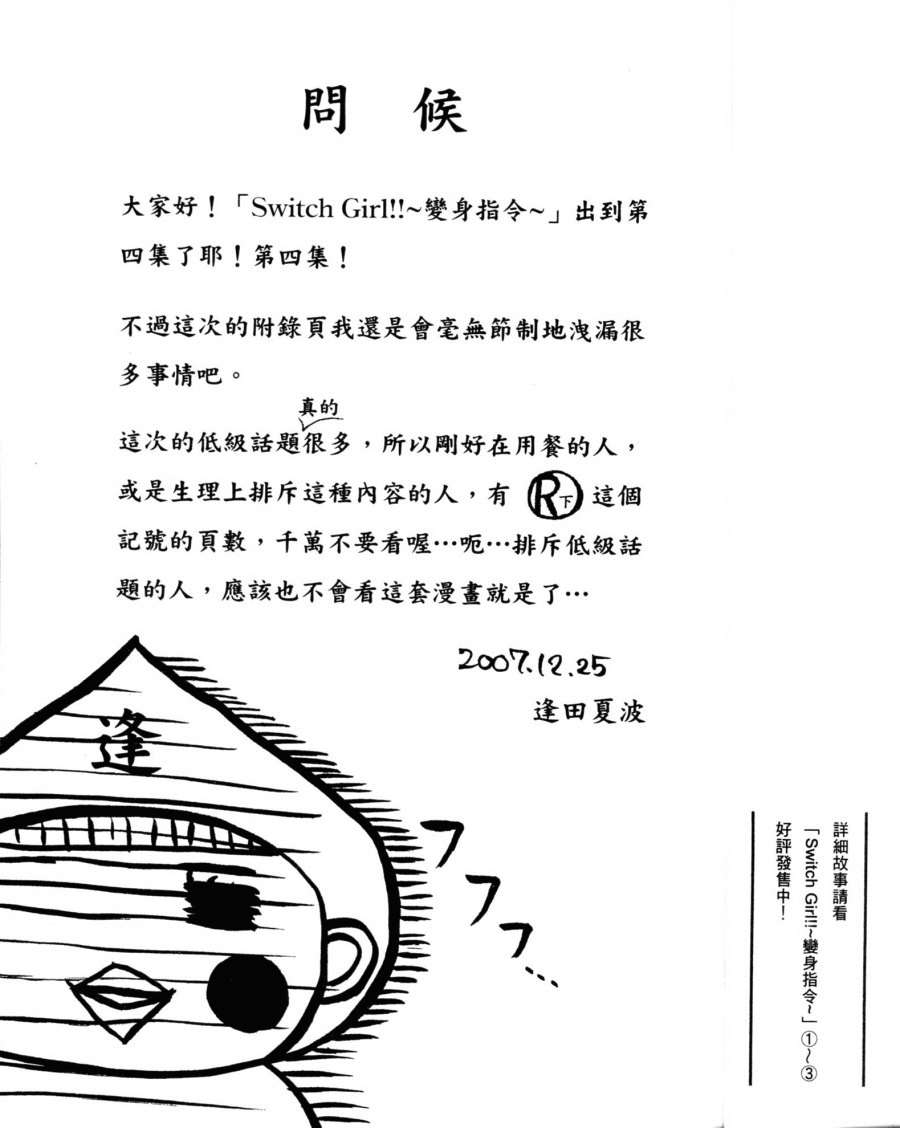 問　候
大家好！「Switch Girl!!~變身指令~」出到第
四集了耶！第四集！
不過這次的附錄頁我還是會毫無節制地洩漏很
多事情吧。
真的
這次的低級話題很多，所以剛好在用餐的人，
或是生理上排斥這種內容的人，有 R下 這個
記號的頁數，千萬不要看喔…呃…排斥低級話
題的人，應該也不會看這套漫畫就是了…
2007.12.25
逢田夏波
逢
フフフ…
詳細故事請看
「Switch Girl!!~變身指令~」①~③
好評發售中！